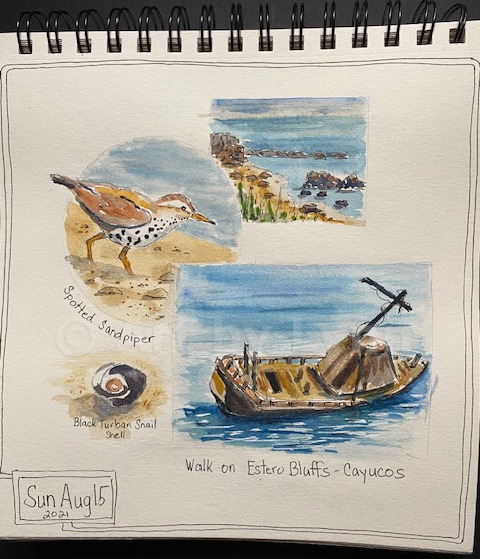 Spotted Sandpiper
Black Turban Snail
Shell
Walk on Estero Bluffs - Cayucos
Sun Aug 15
2021